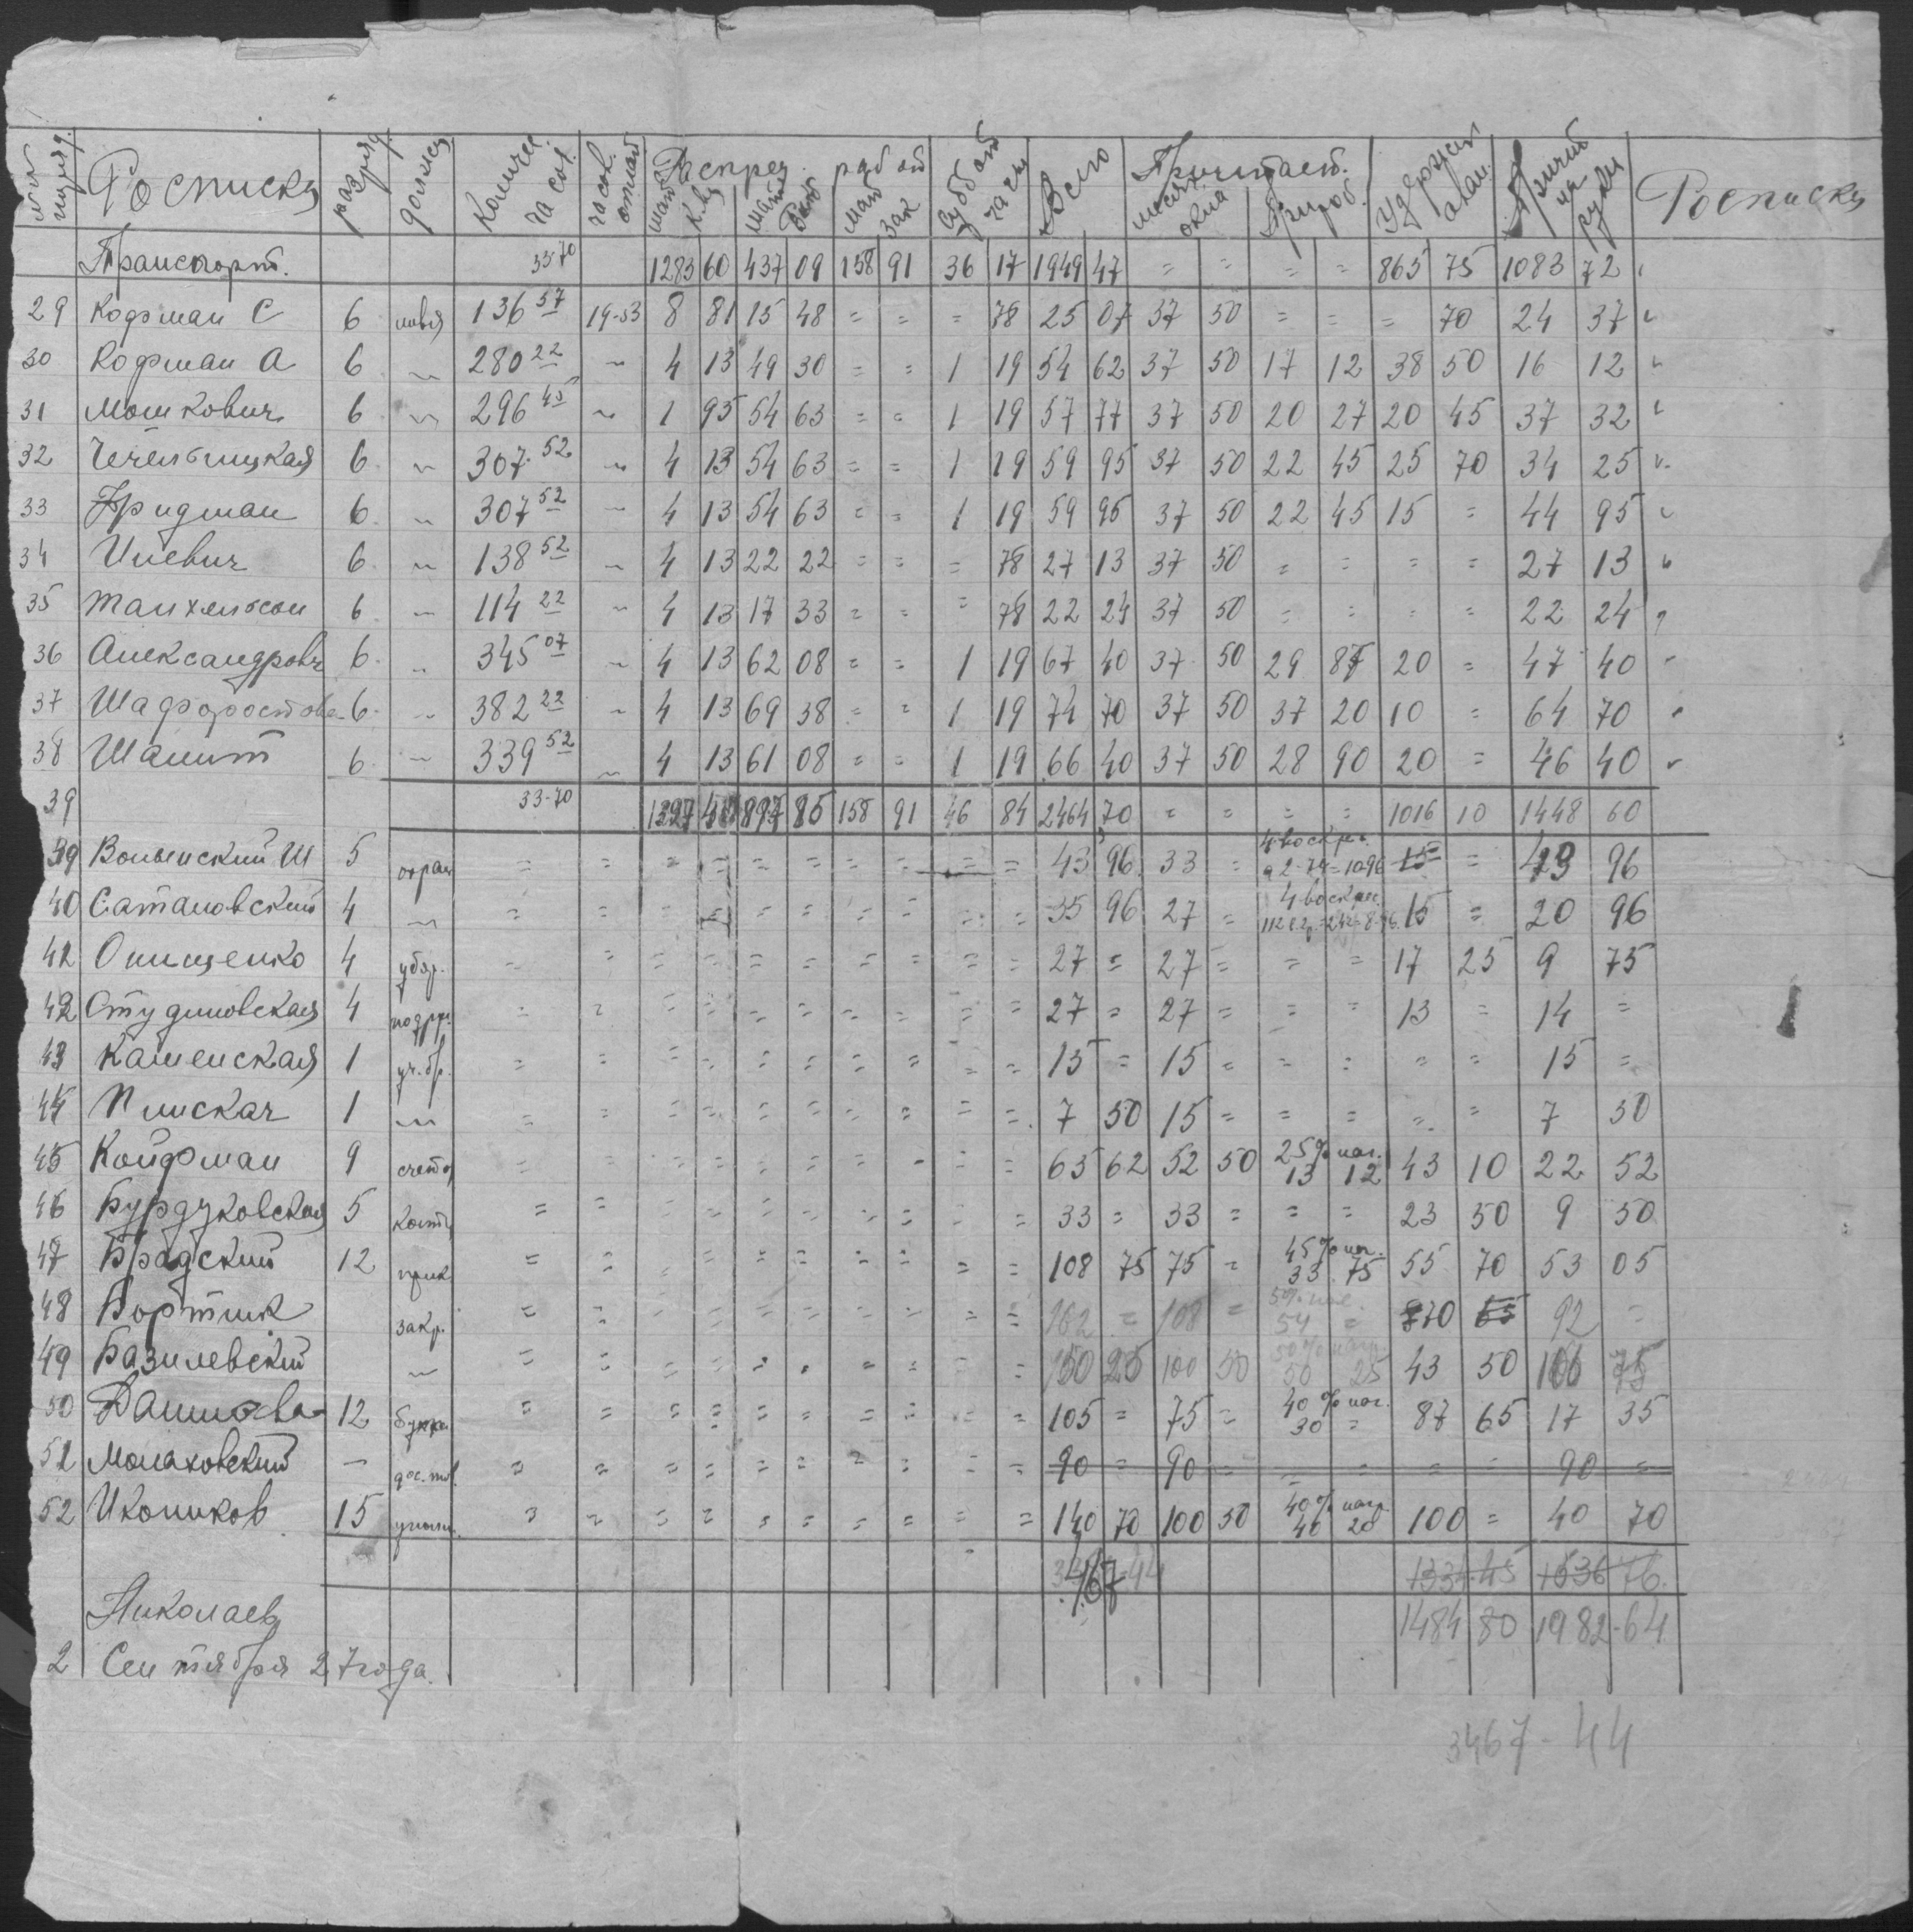 Росписка разряд должн Количес. часов. часов. отмат Распред. работ Суббот часы Всего Причитает. Удержат аван. Причит на руки Росписка
Транспорт. 33-70 1283 60 437 09 158 91 36 17 1949 47 = = = = 865 75 1083 72
29 Кофман С 6 швея 136 57 19-53 8 81 15 48 = = = 78 25 07 37 50 = = = 70 24 37
30 Кофман А 6 〃 280 22 〃 4 13 49 30 = = 1 19 54 62 37 50 17 12 38 50 16 12
31 Мошкович 6 〃 296 45 〃 1 95 54 63 = = 1 19 57 77 37 50 20 27 20 45 37 32
32 Чечельницкая 6 〃 307 52 〃 4 13 54 63 = = 1 19 59 95 37 50 22 45 25 70 34 25
33 Фридман 6 〃 307 52 〃 4 13 54 63 = = 1 19 59 95 37 50 22 45 15 = 44 95
34 Илевич 6 〃 138 52 〃 4 13 22 22 = = = 78 27 13 37 50 = = = = 27 13
35 Танхельсон 6 〃 114 22 〃 4 13 17 33 = = = 78 22 24 37 50 = = = = 22 24
36 Александрович 6 〃 345 07 〃 4 13 62 08 = = 1 19 67 40 37 50 29 87 20 = 47 40
37 Шафоростова 6 〃 382 22 〃 4 13 69 38 = = 1 19 74 70 37 50 37 20 10 = 64 70
38 Шалит 6 〃 339 52 〃 4 13 61 08 = = 1 19 66 40 37 50 28 90 20 = 46 40
39 33-70 1327 897 85 158 91 46 84 2464 70 = = = = 1016 10 1448 60
39 Волынский Ш 5 охран = = = = = = = = = = 43 96 33 = 4 воскр. а 2-74=10-96 15 = 96
40 Сатановский 4 〃 = = = = = = = = = = 35 96 27 = 4 воскрес. 15 = 20 96
42 Онищенко 4 убор. = = = = = = = = = = 27 = 27 = = = 17 25 9 75
42 Студиловская 4 = = = = = = = = = = 27 = 27 = = = 13 = 14 =
43 Каменская 1 уч.бр. = = = = = = = = = = 15 = 15 = = = = = 15 =
44 Плискач 1 〃 = = = = = = = = = = 7 50 15 = = = = = 7 50
45 Койфман 9 счетов = = = = = = = = = = 65 62 52 50 25% наг. 13 12 43 10 22 52
46 Бурдуковская 5 = = = = = = = = = = 33 = 33 = = = 23 50 9 50
47 Брадский 12 прик = = = = = = = = = = 108 75 75 = 45% наг. 33 75 55 70 53 05
48 Бортник закр. = = = = = = = = = = 162 = 108 = 54 = 70 65 92 =
49 Базилевский 〃 = = = = = = = = = = 150 25 100 50 50% нагр 50 25 43 50 106 75
50 Данилова 12 = = = = = = = = = = 105 = 75 = 40% наг. 30 = 87 65 17 35
51 Малаховский – = = = = = = = = = = 90 = 90 = = = = = 90 =
52 Иконников 15 = = = = = = = = = = 140 70 100 50 40% нагр 40 20 100 = 40 70
467 44 1334 45 1536 76
Николаев 1484 80 1982-64
2 Сентября 27 года.
3467-44